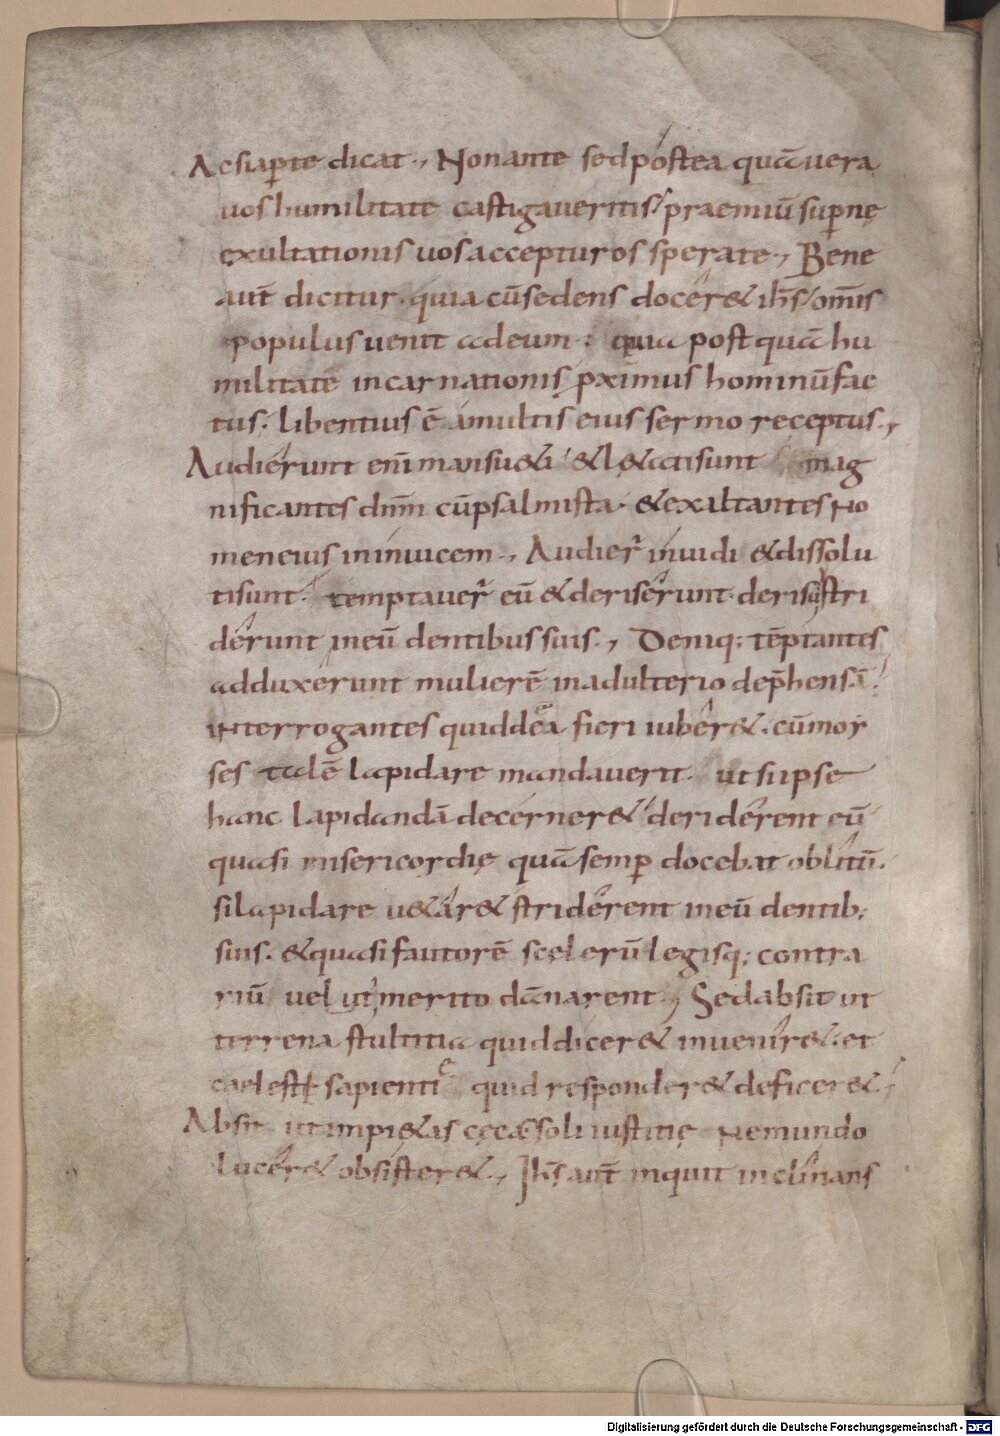 Ac si aꝑte dicat., Non ante sed postea quā uera
uos humilitate castigaueritis / praemiū suꝑnę
exultationis uos accepturos sperate., Bene
aut̄ dicitur. quia cū sedens docer& ih̄s / om̄is
populus uenit ad eum: quia post quā hu
militate incarnationis ꝓximus hominū fac
tus. libentius ē a multis eius sermo receptus.,
Audierunt eni̅ mansu&i / & l&ati sunt mag
nificantes dn̄m cū psalmista. & exaltantes no
men eius in inuicem., Audier̄ inuidi & dissolu
ti sunt. temptauer̄ eū & deriserunt. derisu stri
derunt in eū dentibus suis., Deniq; tēptantes
adduxerunt mulierē in adulterio dep̄hensā.
interrogantes quid de ea fieri iuber&. cū moy
ses talē lapidare mandauerit. ut si ipse
hanc lapidandā decerner& / deriderent eū
quasi misericordię quā semꝑ docebat oblitū.
si lapidare u&ar& striderent in eū dentib;
suis. & quasi fautorē scelerū legisq; contra
riū uelut merito dānarent., Sed absit ut
terrena stultitia quid dicer& inuenir&. et
caelestis sapientia quid responder& deficer&.
Absit ut impi&as cęca soli iustitię ne mundo
lucer& obsister&., Ih̄s aut̄ inquit inclinans
Digitalisierung gefördert durch die Deutsche Forschungsgemeinschaft - DFG